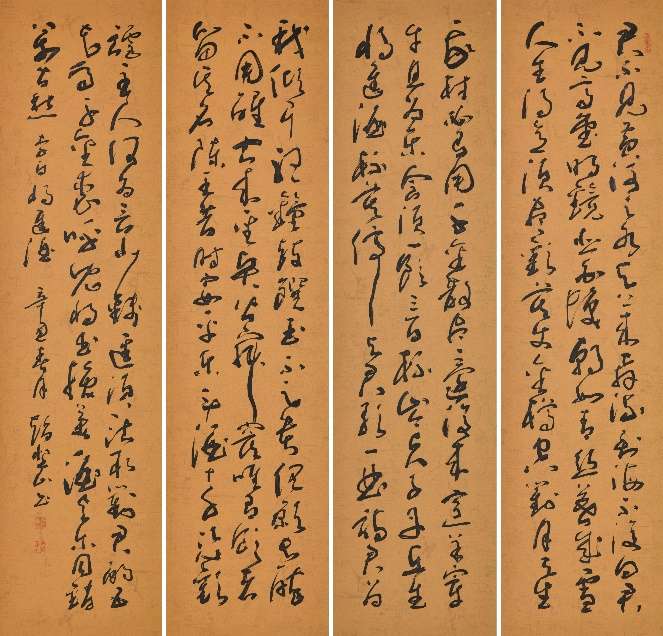 君不見黃河之水天上來奔流到海不復回君
不見高堂明鏡悲白髮朝如青絲暮成雪
人生得意須盡歡莫使金樽空對月天生
我材必有用千金散盡還復來烹羊宰
牛且為樂會須一飲三百杯岑夫子丹丘生
將進酒杯莫停與君歌一曲請君為
我傾耳聽鐘鼓饌玉不足貴但願長醉
不用醒古來聖賢皆寂寞唯有飲者
留其名陳王昔時宴平樂斗酒十千恣歡
謔主人何為言少錢徑須沽取對君酌五
花馬千金裘呼兒將出換美酒與爾同銷
萬古愁 李白將進酒 春月 書